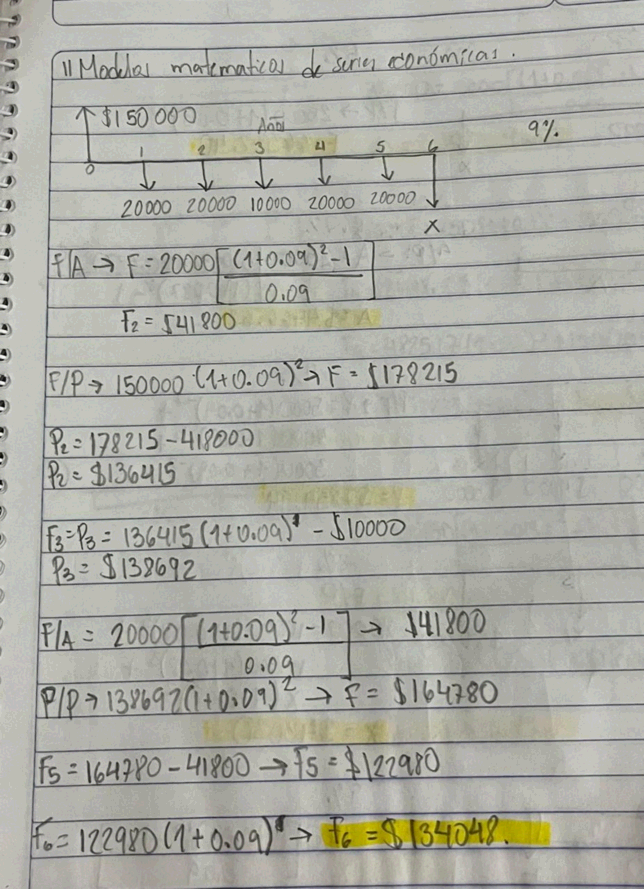 11 Modelos matematicos de series económicas.
$150 000
Años
9%
0 1 2 3 4 5 6
20000 20000 10000 20000 20000
X
F/A → F = 20000 [(1+0.09)² - 1 / 0.09]
F₂ = $41800
F/P → 150000 (1+0.09)² → F = $178215
P₂ = 178215 - 418000
P₂ = $136415
F₃ = P₃ = 136415 (1+0.09)¹ - $10000
P₃ = $138692
F/A = 20000 [(1+0.09)² - 1 / 0.09] → $41800
P/P → 138692 (1+0.09)² → F = $164780
F₅ = 164780 - 41800 → F₅ = $122980
F₆ = 122980 (1+0.09)¹ → F₆ = $134048.